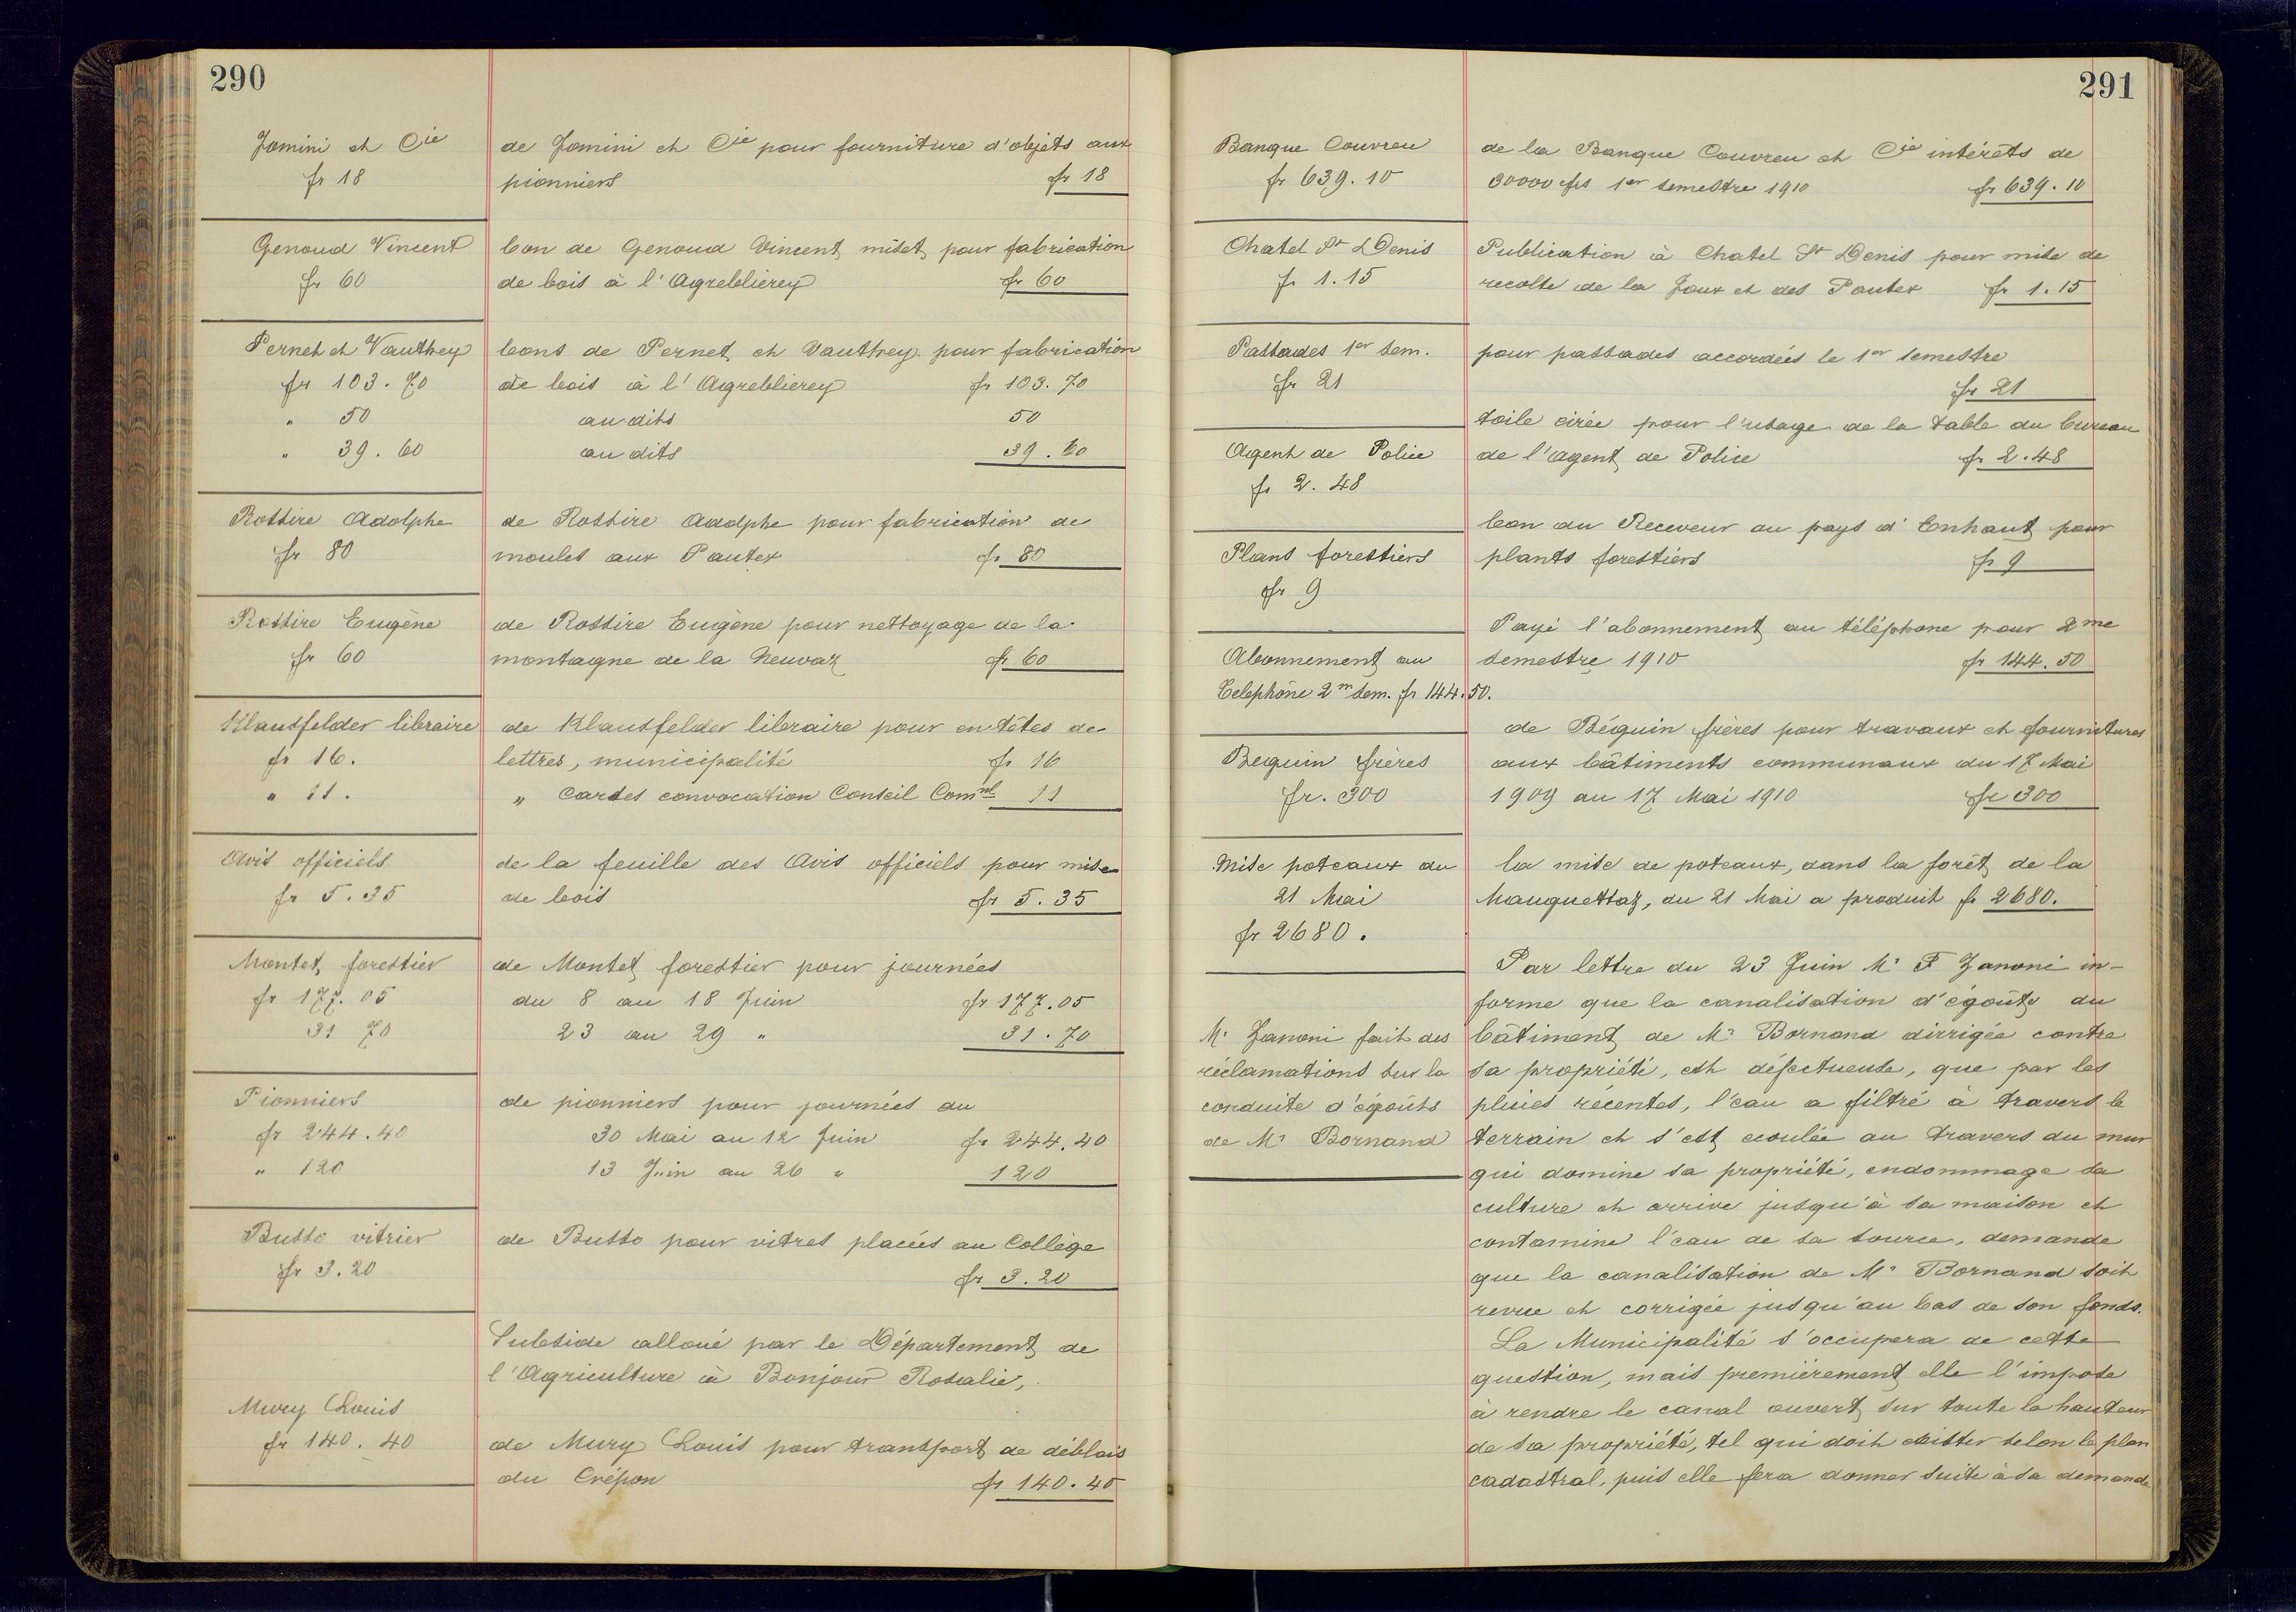 290
Jomini et Cie
fr 18
de Jomini et Cie pour fourniture d'objets aux
pionniers fr 18
Genoud Vincent
fr 60
bon de Genoud Vincent, miset, pour fabrication
de bois à l'Agreblierey fr 60
Pernet et Vauthey
fr 103.70
" 50
" 39.60
bons de Pernet et Vauthey pour fabrication
de bois à l'Agreblierey fr 103.70
au dits 50
au dits 39.60
Rossire Adolphe
fr 80
de Rossire Adolphe pour fabrication de
moules aux Pautex fr 80
Rossire Eugène
fr 60
de Rossire Eugène pour nettoyage de la
montagne de la Neuvaz fr 60
Klausfelder libraire
fr 16.
" 11.
de Klausfelder libraire pour en têtes de
lettres, municipalité fr 16
" Cartes convocation Conseil Comnl 11
Avis officiels
fr 5.35
de la feuille des Avis officiels pour mise
de bois fr 5.35
Montet, forestier
fr 177.05
31 70
de Montet forestier pour journées
du 8 au 18 Juin fr 177.05
23 au 29 " 31.70
Pionniers
fr 244.40
" 120
de pionniers pour journées du
30 Mai au 12 Juin fr 244.40
13 Juin au 26 " 120
Busso vitrier
fr 3.20
de Busso pour vitres placées au Collège
fr 3.20
Subside alloué par le Département de
l'Agriculture à Bonjour Rosalie,
Mury Louis
fr 140.40
de Mury Louis pour transport de déblais
du Crépon fr 140.40
291
Banque Couvreu
fr 639.10
de la Banque Couvreu et Cie intérêts de
30000 frs 1er semestre 1910 fr 639.10
Chatel St Denis
fr 1.15
Publication à Chatel St Denis pour mise de
recolte de la Joux et des Pautex fr 1.15
Passades 1er sem.
fr 21
pour passades accordées le 1er semestre
fr 21
Agent de Police
fr 2.48
toile cirée pour l'usage de la table du bureau
de l'agent de Police fr 2.48
Plans forestiers
fr 9
bon du Receveur au pays d'Enhaut pour
plants forestiers fr 9
Abonnement au
Telephone 2m sem. fr 144.50.
Payé l'abonnement au téléphone pour 2me
semestre 1910 fr 144.50
Beguin frères
fr. 300
de Béguin frères pour travaux et fournitures
aux bâtiments communaux du 17 Mai
1909 au 17 Mai 1910 fr 300
Mise poteaux du
21 Mai
fr 2680.
la mise de poteaux, dans la forêt de la
Mauquettaz, du 21 Mai a produit fr 2680.
Mr Zanoni fait des
réclamations sur la
conduite d'égoûts
de Mr Bornand
Par lettre du 23 Juin Mr F Zanoni in-
forme que la canalisation d'égoûts du
bâtiment de Mr Bornand dirrigée contre
sa propriété, est défectueuse, que par les
pluies récentes, l'eau a filtré à travers le
terrain et s'est ecoulée au travers du mur
qui domine sa propriété, endommage sa
culture et arrive jusqu'à sa maison et
contamine l'eau de sa source, demande
que la canalisation de Mr Bornand soit
revue et corrigée jusqu'au bas de son fonds.
La Municipalité s'occupera de cette
question, mais premièrement elle l'impose
à rendre le canal ouvert, sur toute la hauteur
de sa propriété, tel qui doit exister selon le plan
cadastral, puis elle fera donner suite à sa demande